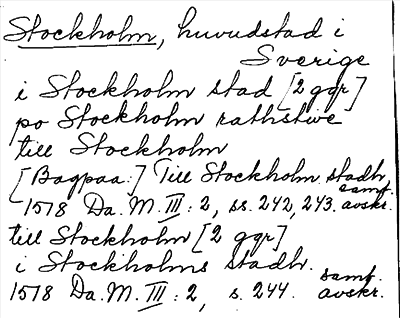 Stockholm, huvudstad i
Sverige
i Stockholm stad [2 ggr]
po Stockholm rathstwe
till Stockholm
[Bagpaa:] Till Stockholm stadh
1578 Da. M. III: 2, ss. 242, 243. samt. avskr.
till Stockholm [2 ggr]
i Stockholms stadh.
1578 Da. M. III: 2, s. 244. samt. avskr.